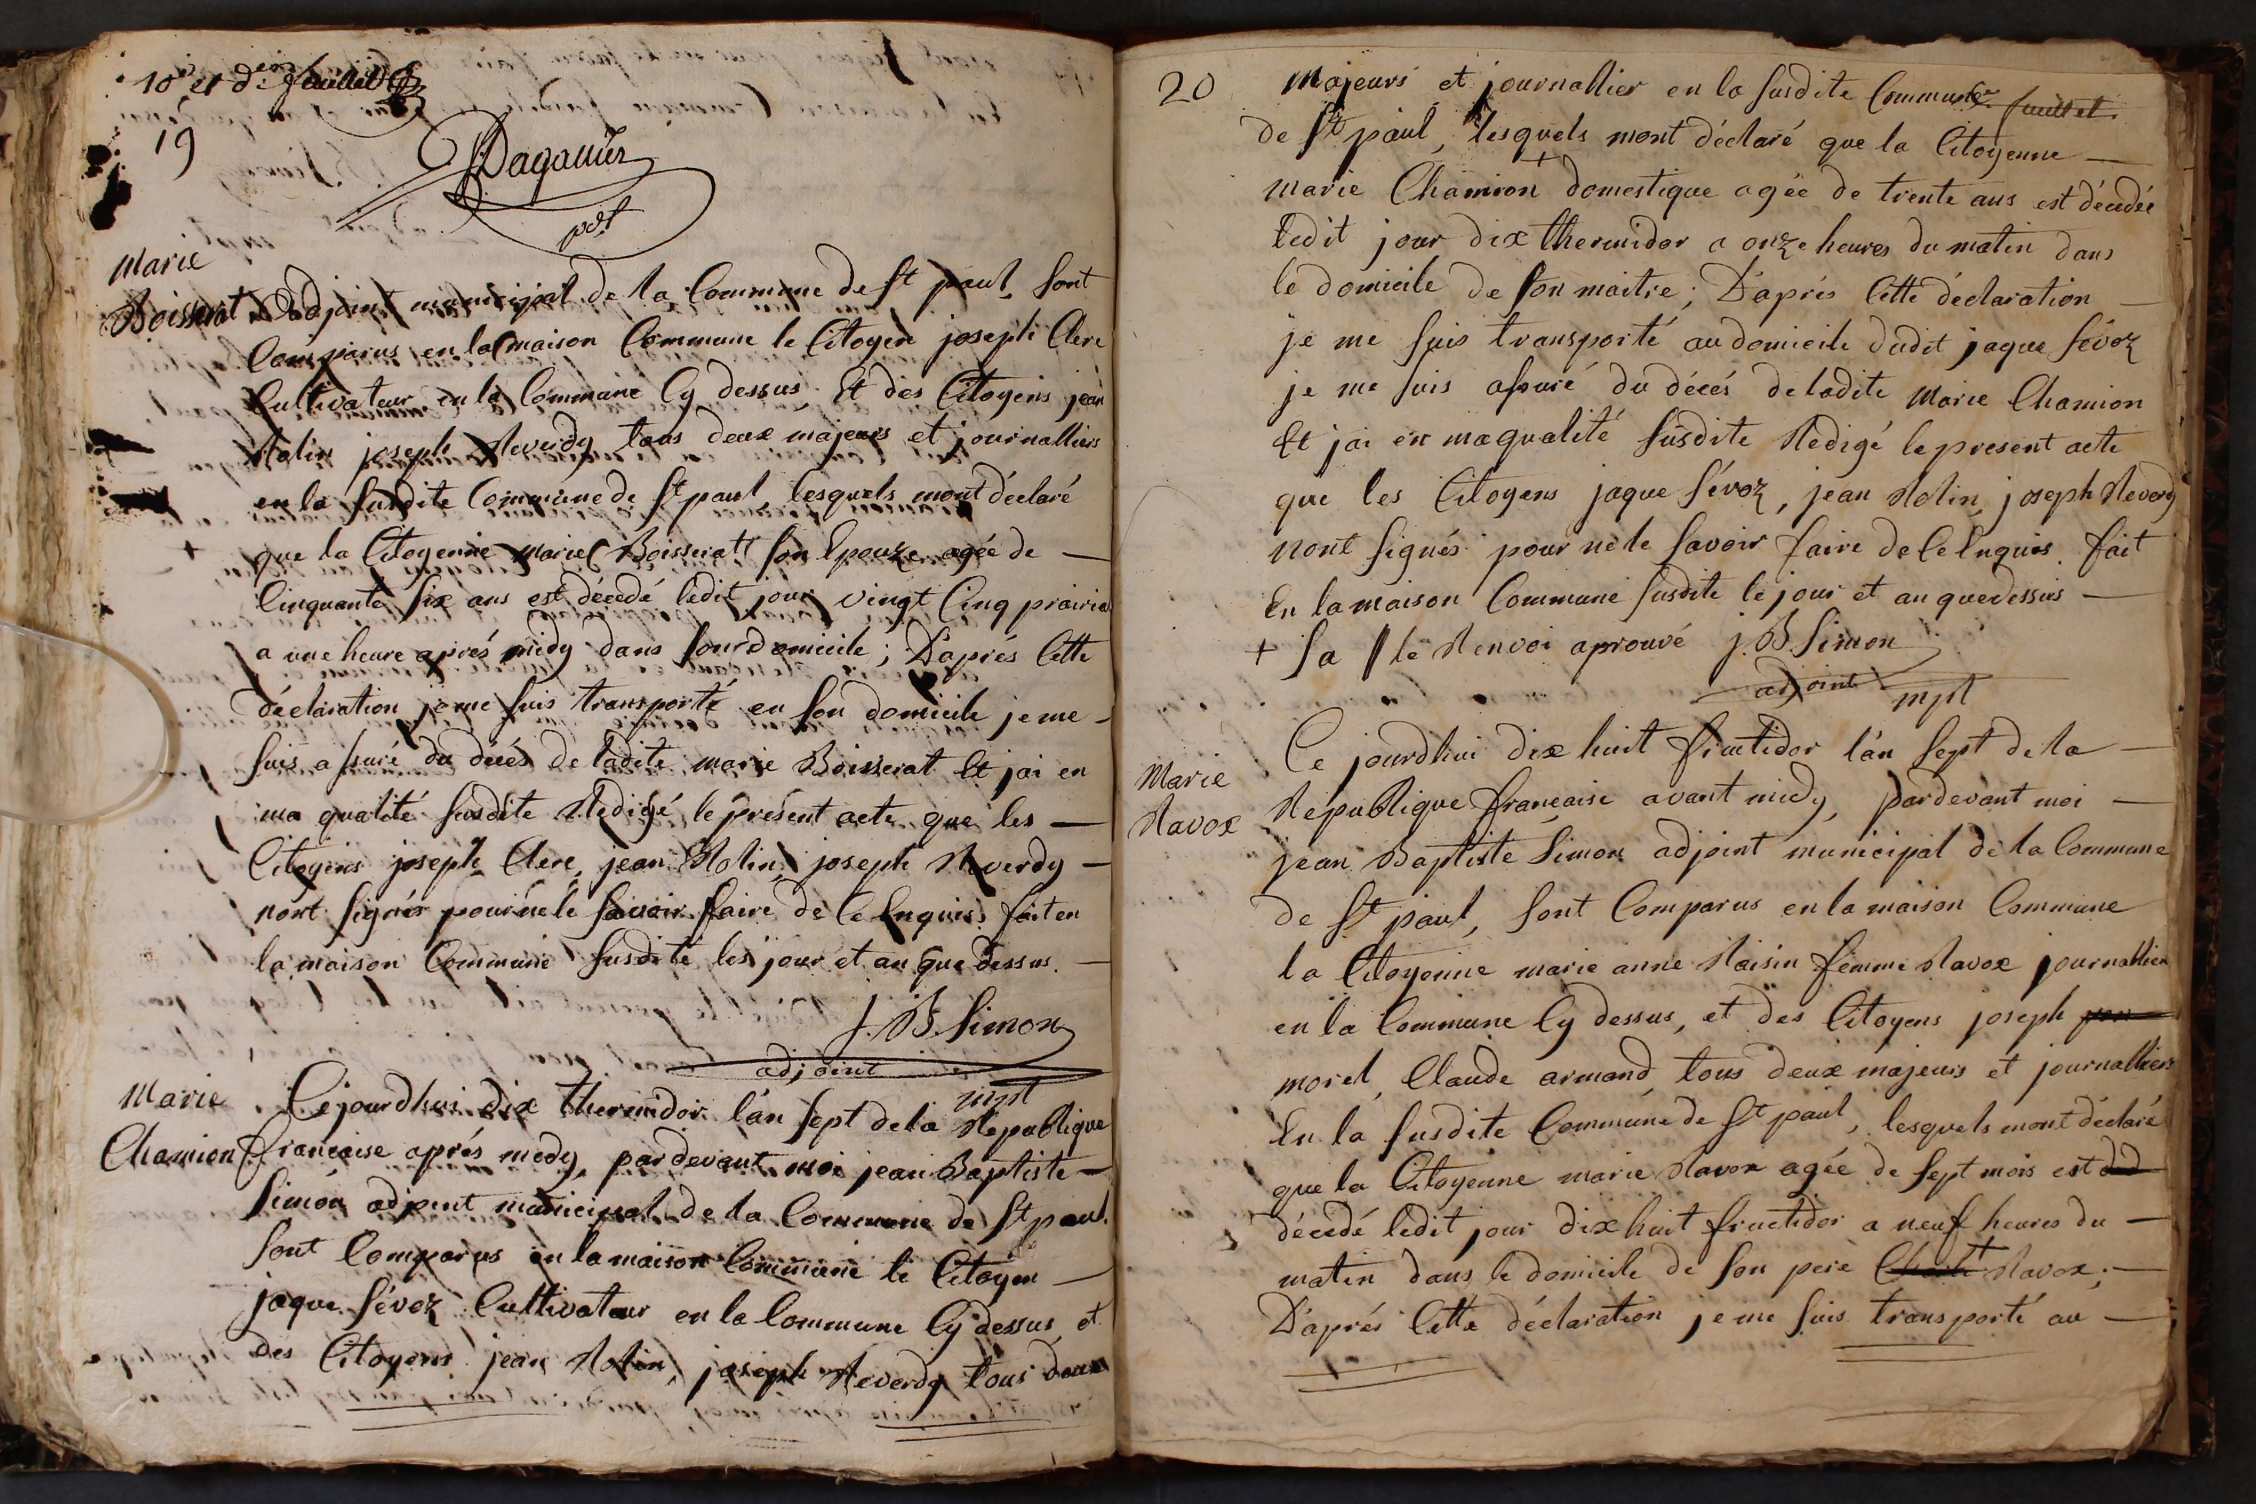 10e et der feuillet
19
Dagallier
pdt
Marie
Boisserat
adjoint municipal de la Commune de St paul, sont
Comparus en la maison Commune le Citoyen joseph Clere
Cultivateur en la Commune Cy dessus Et des Citoyens jean
Rolin joseph Reverdy tous deux majeurs et journalliers
en la susdite Commune de St paul, lesquels mont déclaré
+ que la Citoyenne Marie Boisserat son Epouze agée de —
Cinquante six ans est décedé ledit jour vingt Cinq prairial
a une heure aprés midy dans son domicile ; D'aprés Cette
déclaration je me suis transporté en son domicile je me -
suis assuré du décés de ladite marie Boisserat Et jai en
ma qualité susdite Redigé le présent acte que les —
Citoyens joseph Clere, jean Rolin, joseph Reverdy —
nont signés pour ne le savoir faire de Ce Enquis. fait en
la maison Commune susdite les jour et an que dessus. —
J. B. Simon
adjoint
mpl
Marie
Chamion
Cejourdhui dix thermidor l'an sept de la Republique
francaise aprés midy, pardevant moi jean Baptiste —
Simon adjoint municipal de la Commune de St paul.
sont Comparus en la maison Commune le Citoyen —
jaque Sévoz Cultivateur en la Commune Cy dessus, et
des Citoyens jean Rolin, joseph Reverdy tous deux
20
feuillet.
Majeurs et journallier en la susdite Commune
de St paul, lesquels mont déclaré que la Citoyenne —
marie Chamion + domestique agée de trente ans est décedée
ledit jour dix thermidor a onze heures du matin dans
le domicile de son maitre ; D'aprés Cette déclaration —
je me suis transporté au domicile dudit jaque Sévoz
je me suis assuré du décés de ladite Marie Chamion
Et jai en ma qualité susdite Redigé le present acte
que les Citoyens jaque Sévoz, jean Rolin, joseph Reverdy
nont signés pour ne le savoir faire de Ce Enquis. fait
En la maison Commune susdite le jour et an que dessus —
+ sa le Renvoi aprouvé J. B. Simon
adjoint mpl
Marie
Ravox
Ce jourdhui dix huit fructidor l'an sept de la —
Republique française avant midy, pardevant moi —
jean Baptiste Simon adjoint municipal de la Commune
de St paul, sont Comparus en la maison Commune
la Citoyenne marie anne Raisin femme Ravox journallier
en la Commune Cy dessus, et des Citoyens joseph
morel, Claude armand, tous deux majeurs et journalliers
En la susdite Commune de St paul, lesquels mont déclaré
que la Citoyenne marie Ravox agée de sept mois est dd
décedé ledit jour dix huit fructidor a neuf heures du —
matin dans le domicile de son pere Ravox ; —
D'aprés Cette déclaration je me suis transporté au —